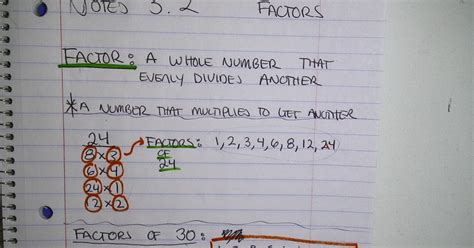 NOTES 3.2 FACTORS
FACTOR: A WHOLE NUMBER THAT
EVENLY DIVIDES ANOTHER
*A NUMBER THAT MULTIPLIES TO GET ANOTHER
24
8×3
6×4
24×1
12×2
FACTORS: 1, 2, 3, 4, 6, 8, 12, 24
OF
24
FACTORS OF 30: